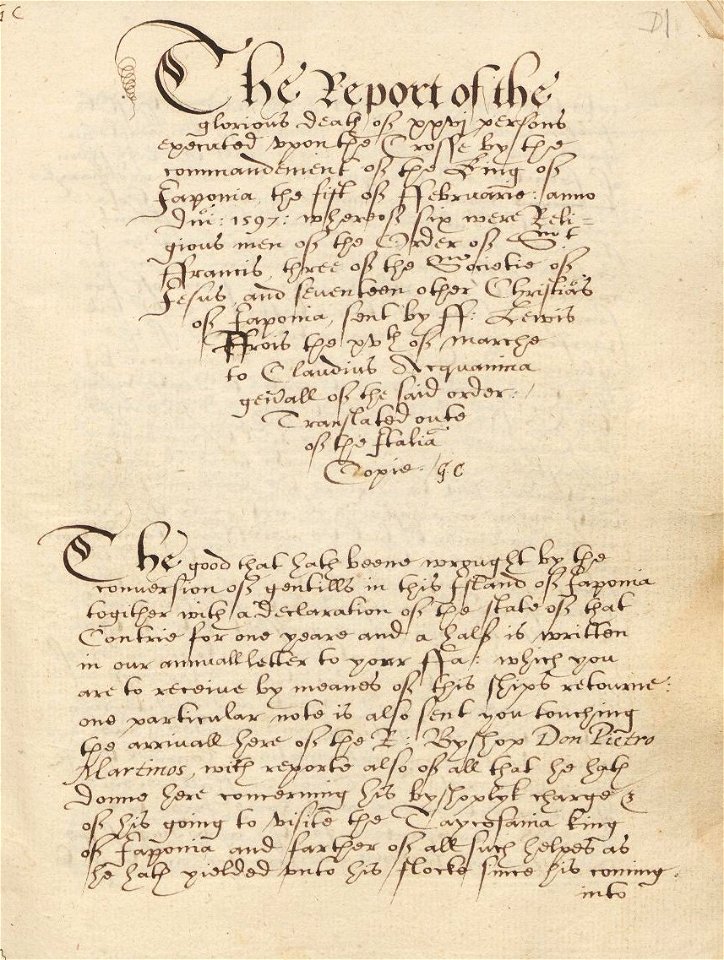 The Report of the
glorious death of xxvj persons
executed vpon the Crosse by the
commandement of the King of
Japonia, the fift of ffebruarie: anno
Dni: 1597: whereof six were Reli=
gious men of the Order of St
ffrancis, three of the Societie of
Jesus, and seventeen other Christiās
of Japonia, sent by ff: Lewis
ffrois the xvth of marche
to Claudius Acquaviva
gen̄all of the said order:
Translated oute
of the Italiā
Copie. gC
The good that hath beene wrought by the
conversion of gentills in this Island of Japonia
togither with a declaration of the state of that
Contrie for one yeare and a half is written
in our annuall letter to yoᵘʳ ffa: which you
are to receive by meanes of this ships retourne:
one particular note is also sent you touching
the arrivall here of the R: Byshop Don Pietro
Martinos, with reporte also of all that he hath
donne here concerning his byshoplyk charge &
of his going to visite the Taycosama king
of Japonia and farther of all such helpes as
he hath yielded vnto his flocke since his coming
into